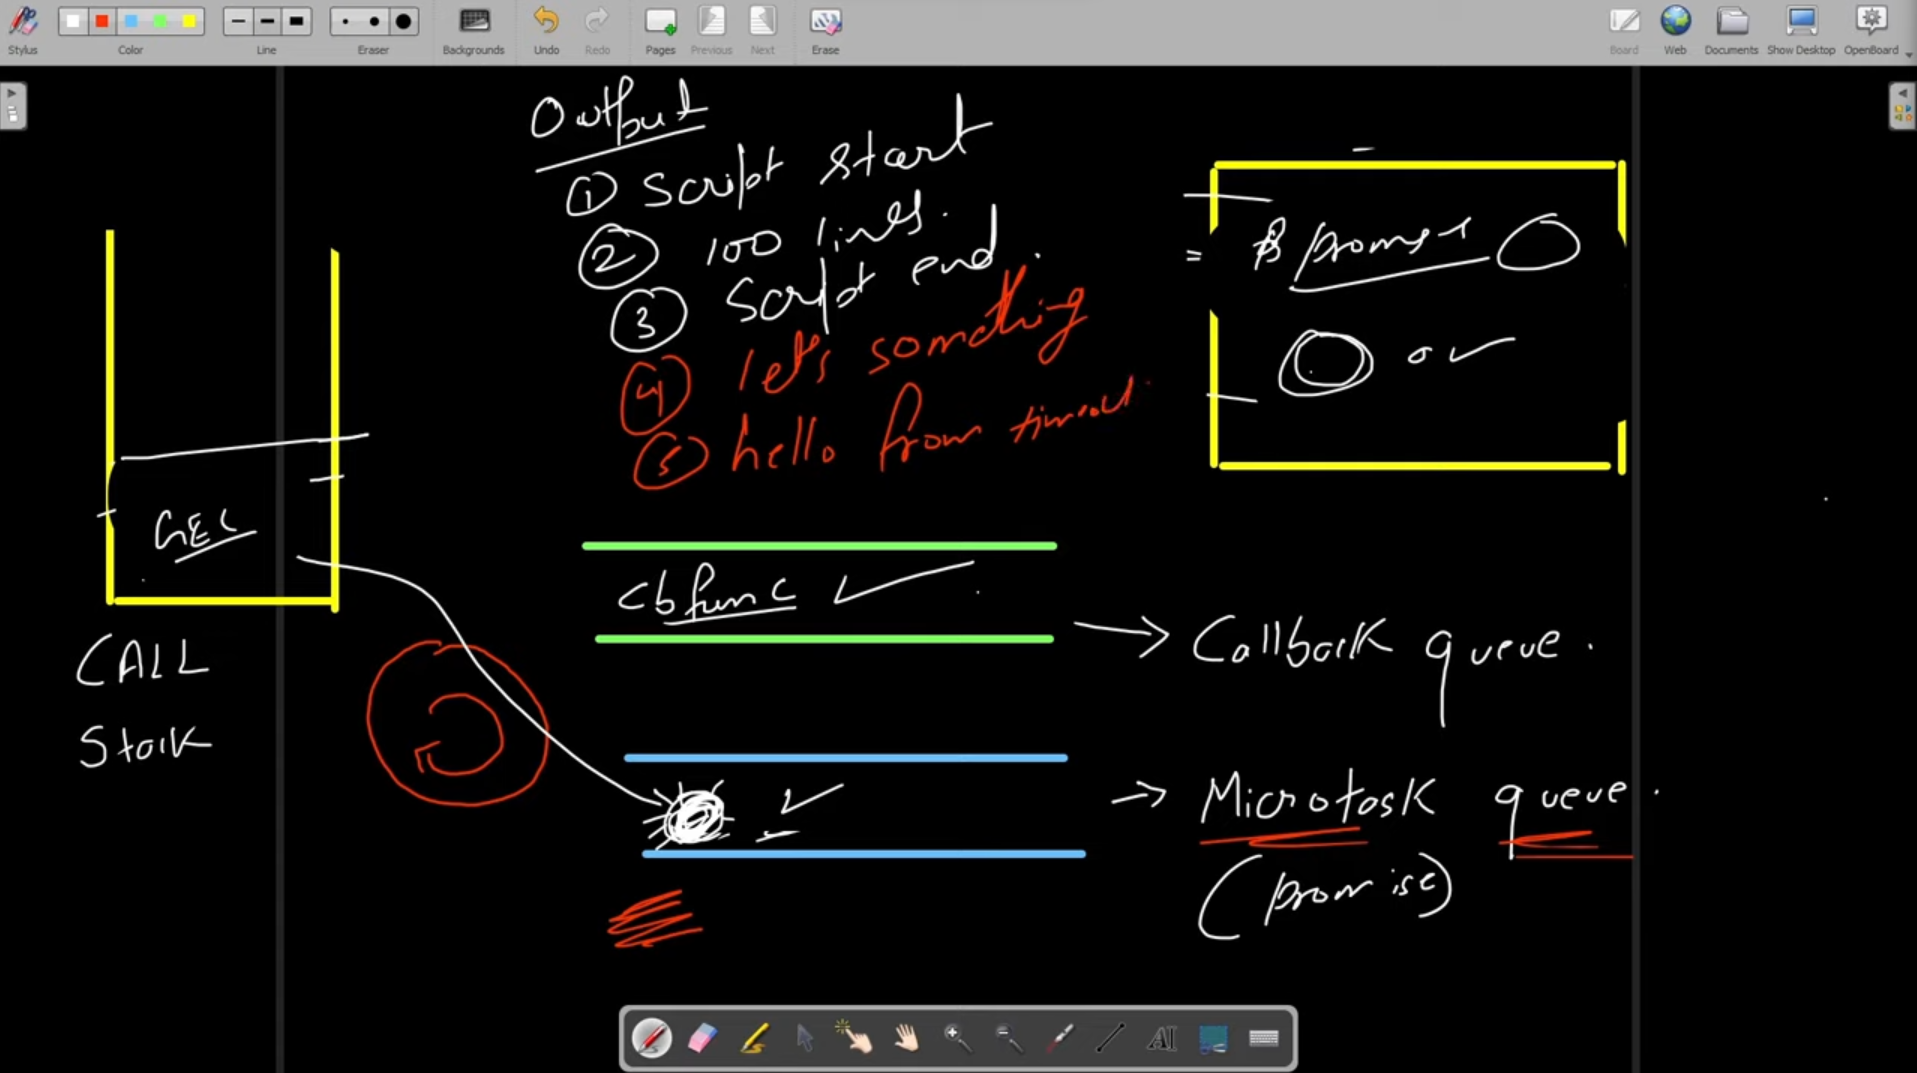 Stylus
Color
Line
Eraser
Backgrounds
Undo
Redo
Pages
Previous
Next
Erase
Board
Web
Documents
Show Desktop
OpenBoard
Output
① Script start
② 100 lines.
③ Script end.
④ let's something
⑤ hello from timeout
promise
GEC
CALL
Stack
cb func
→ Callback queue.
→ Microtask queue.
(promise)
AI